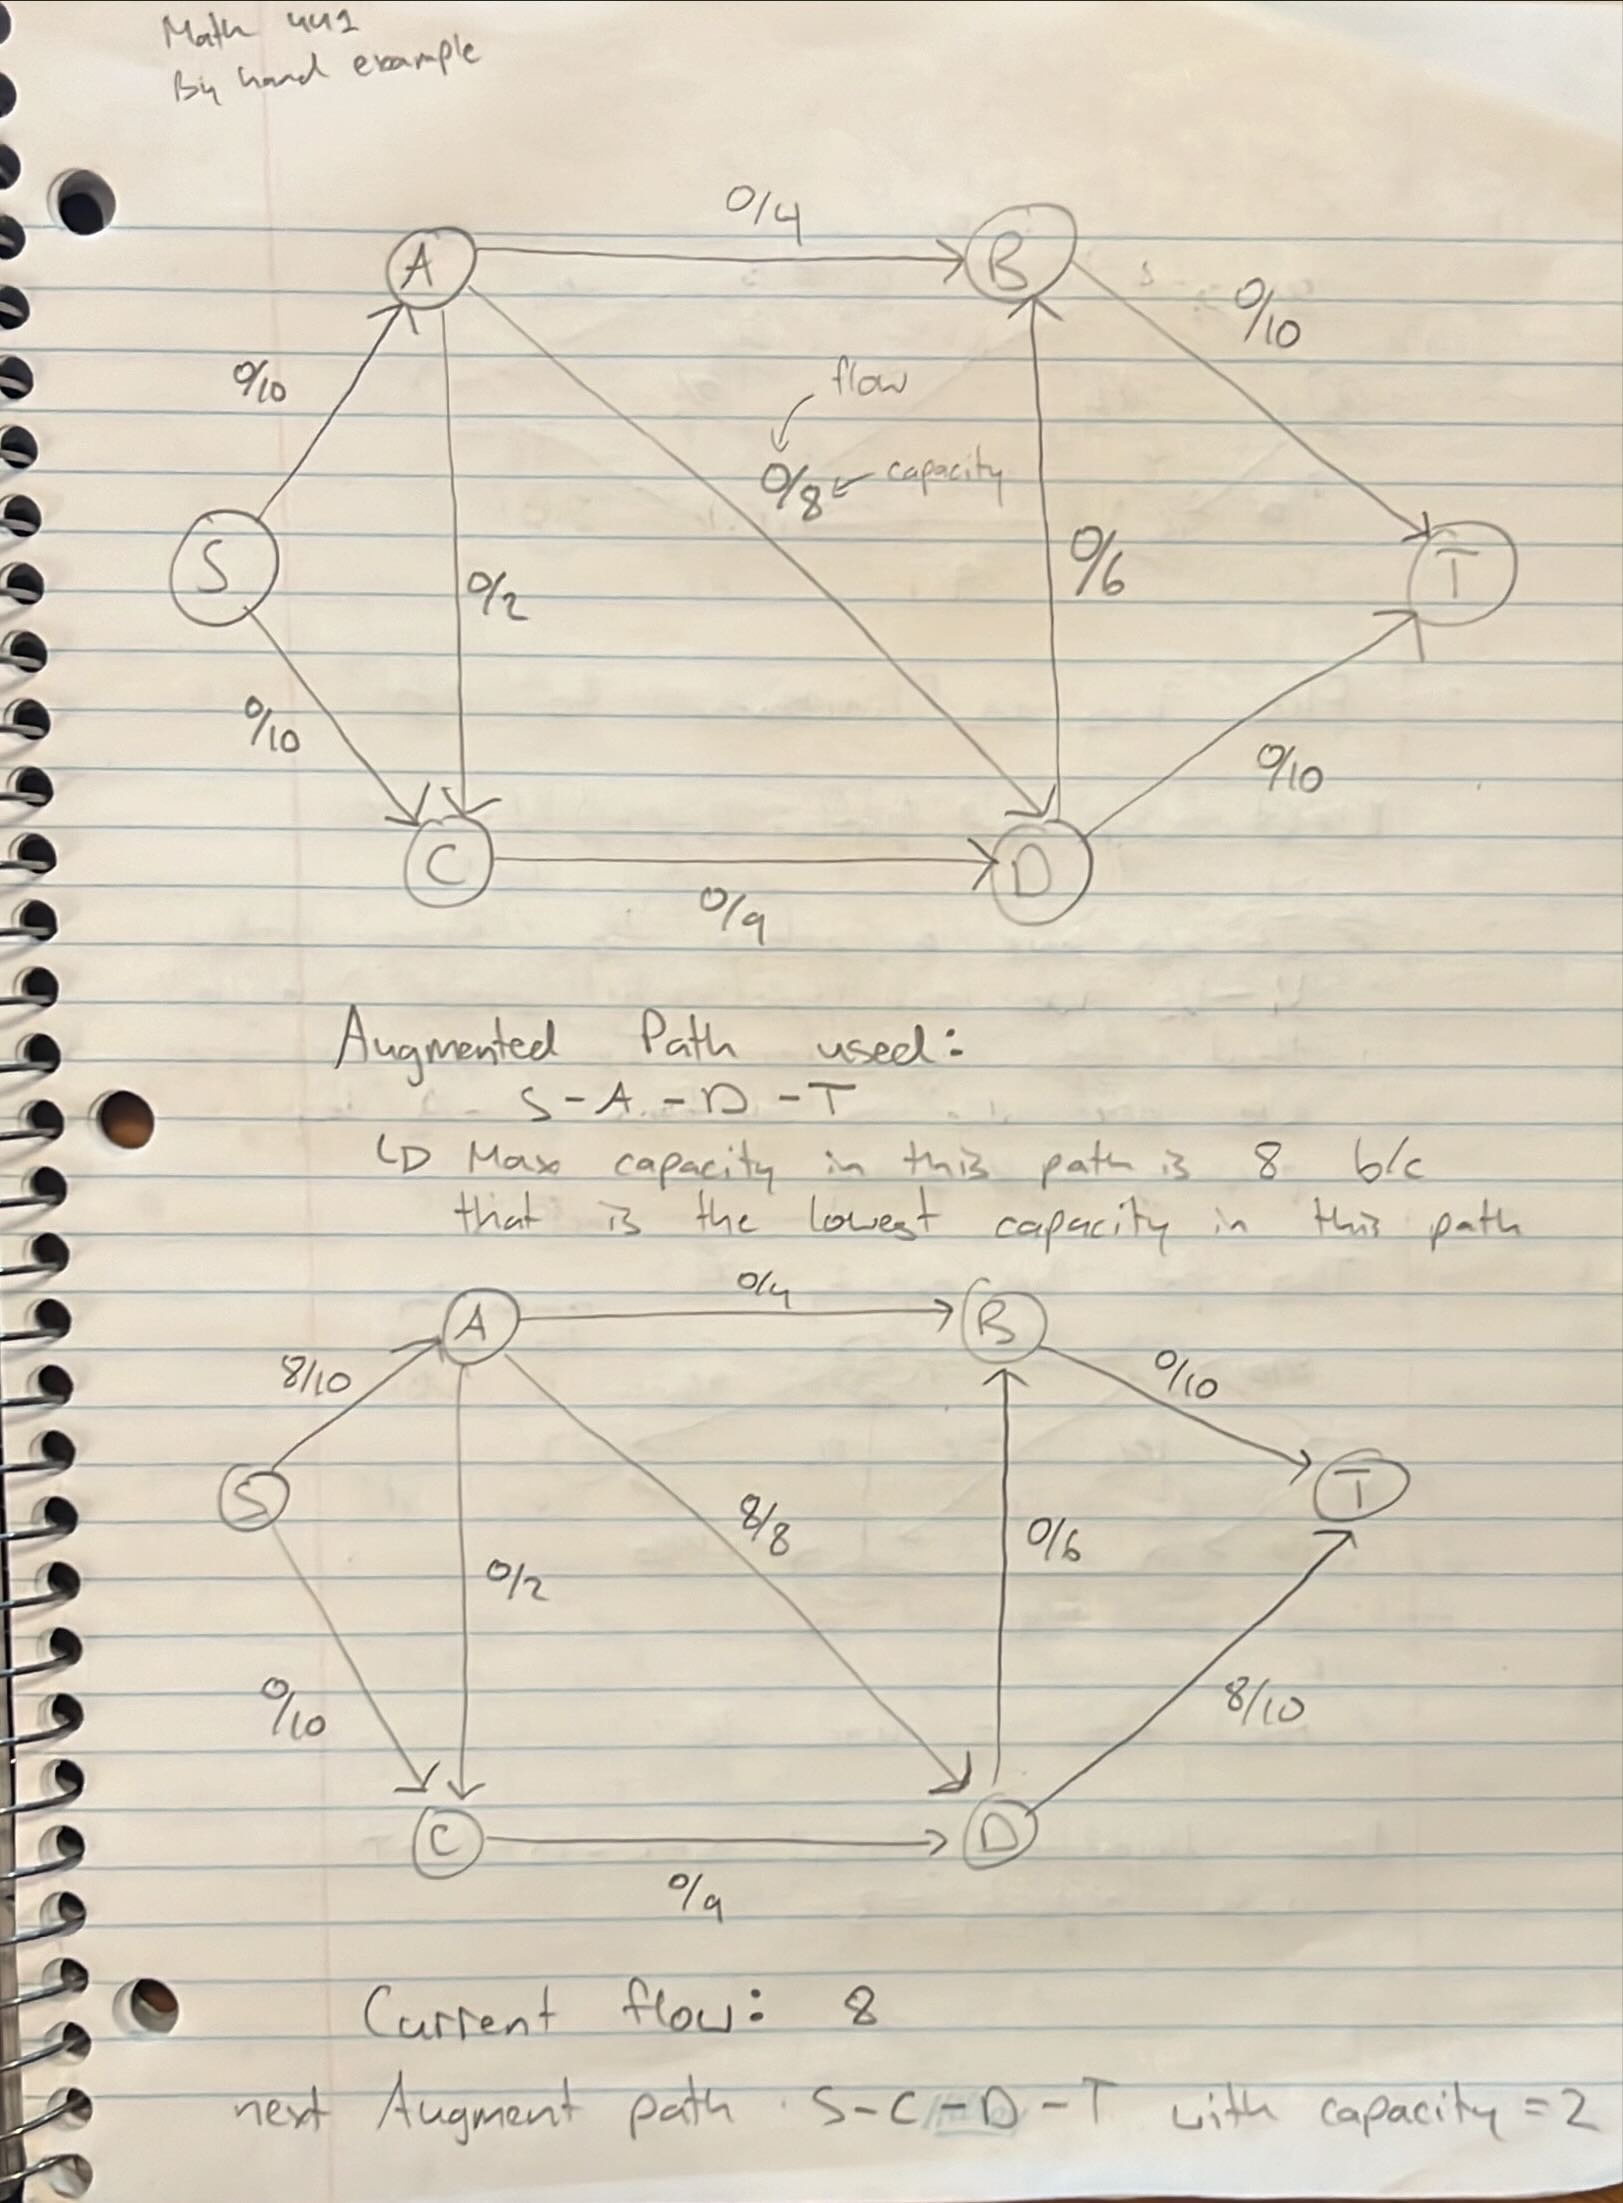 Math 441
By hand example
0/4
A
B
0/10
0/10
flow
0/8 capacity
S
0/2
0/6
T
0/10
0/10
C
D
0/9
Augmented Path used:
S-A-D-T
Max capacity in this path is 8 b/c
that is the lowest capacity in this path
0/4
A
B
8/10
0/10
S
T
8/8
0/6
0/2
0/10
8/10
C
D
0/9
Current flow: 8
next Augment path S-C-D-T with capacity = 2